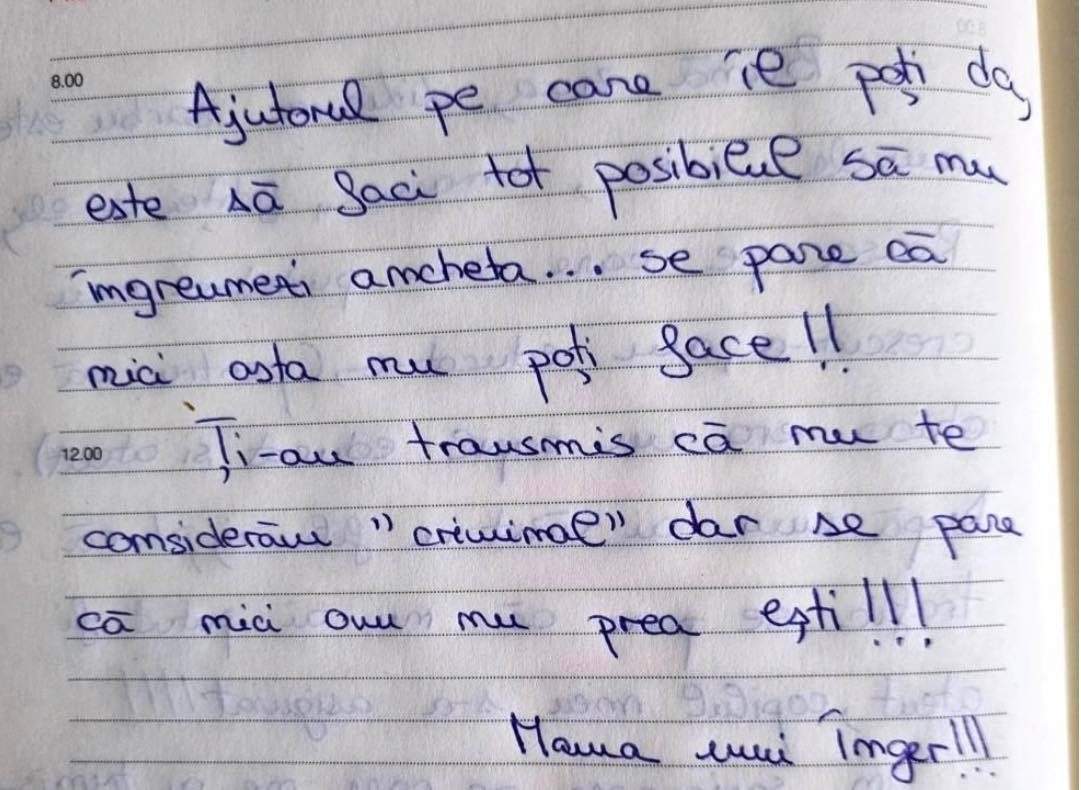 8.00
Ajutorul pe care îl poți da,
este să faci tot posibilul să nu
îngreunezi ancheta... se pare că
nici asta nu poți face!!
12.00 Ți-am transmis că nu te
considerăm "criminal" dar se pare
că nici om nu prea ești!!!
Mama unui înger!!!